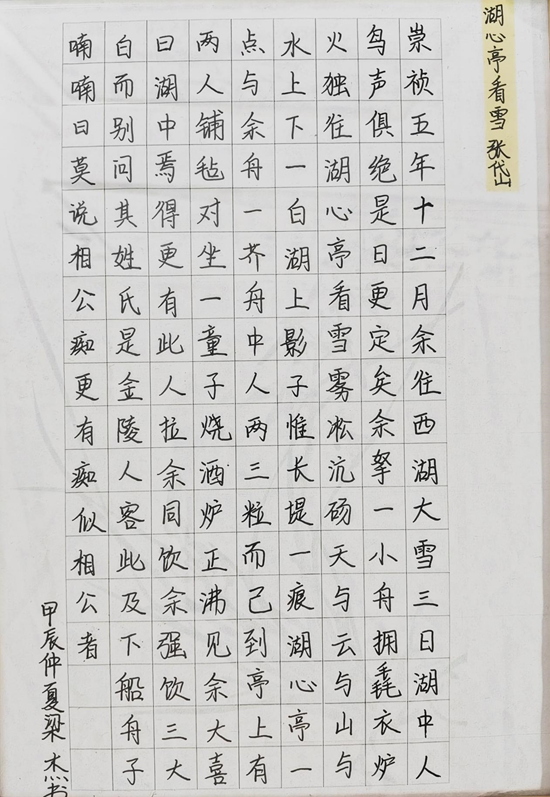 湖心亭看雪 张岱
崇祯五年十二月余往西湖大雪三日湖中人
鸟声俱绝是日更定矣余拏一小舟拥毳衣炉
火独往湖心亭看雪雾凇沆砀天与云与山与
水上下一白湖上影子惟长堤一痕湖心亭一
点与余舟一芥舟中人两三粒而已到亭上有
两人铺毡对坐一童子烧酒炉正沸见余大喜
曰湖中焉得更有此人拉余同饮余强饮三大
白而别问其姓氏是金陵人客此及下船舟子
喃喃曰莫说相公痴更有痴似相公者
甲辰仲夏梁杰书